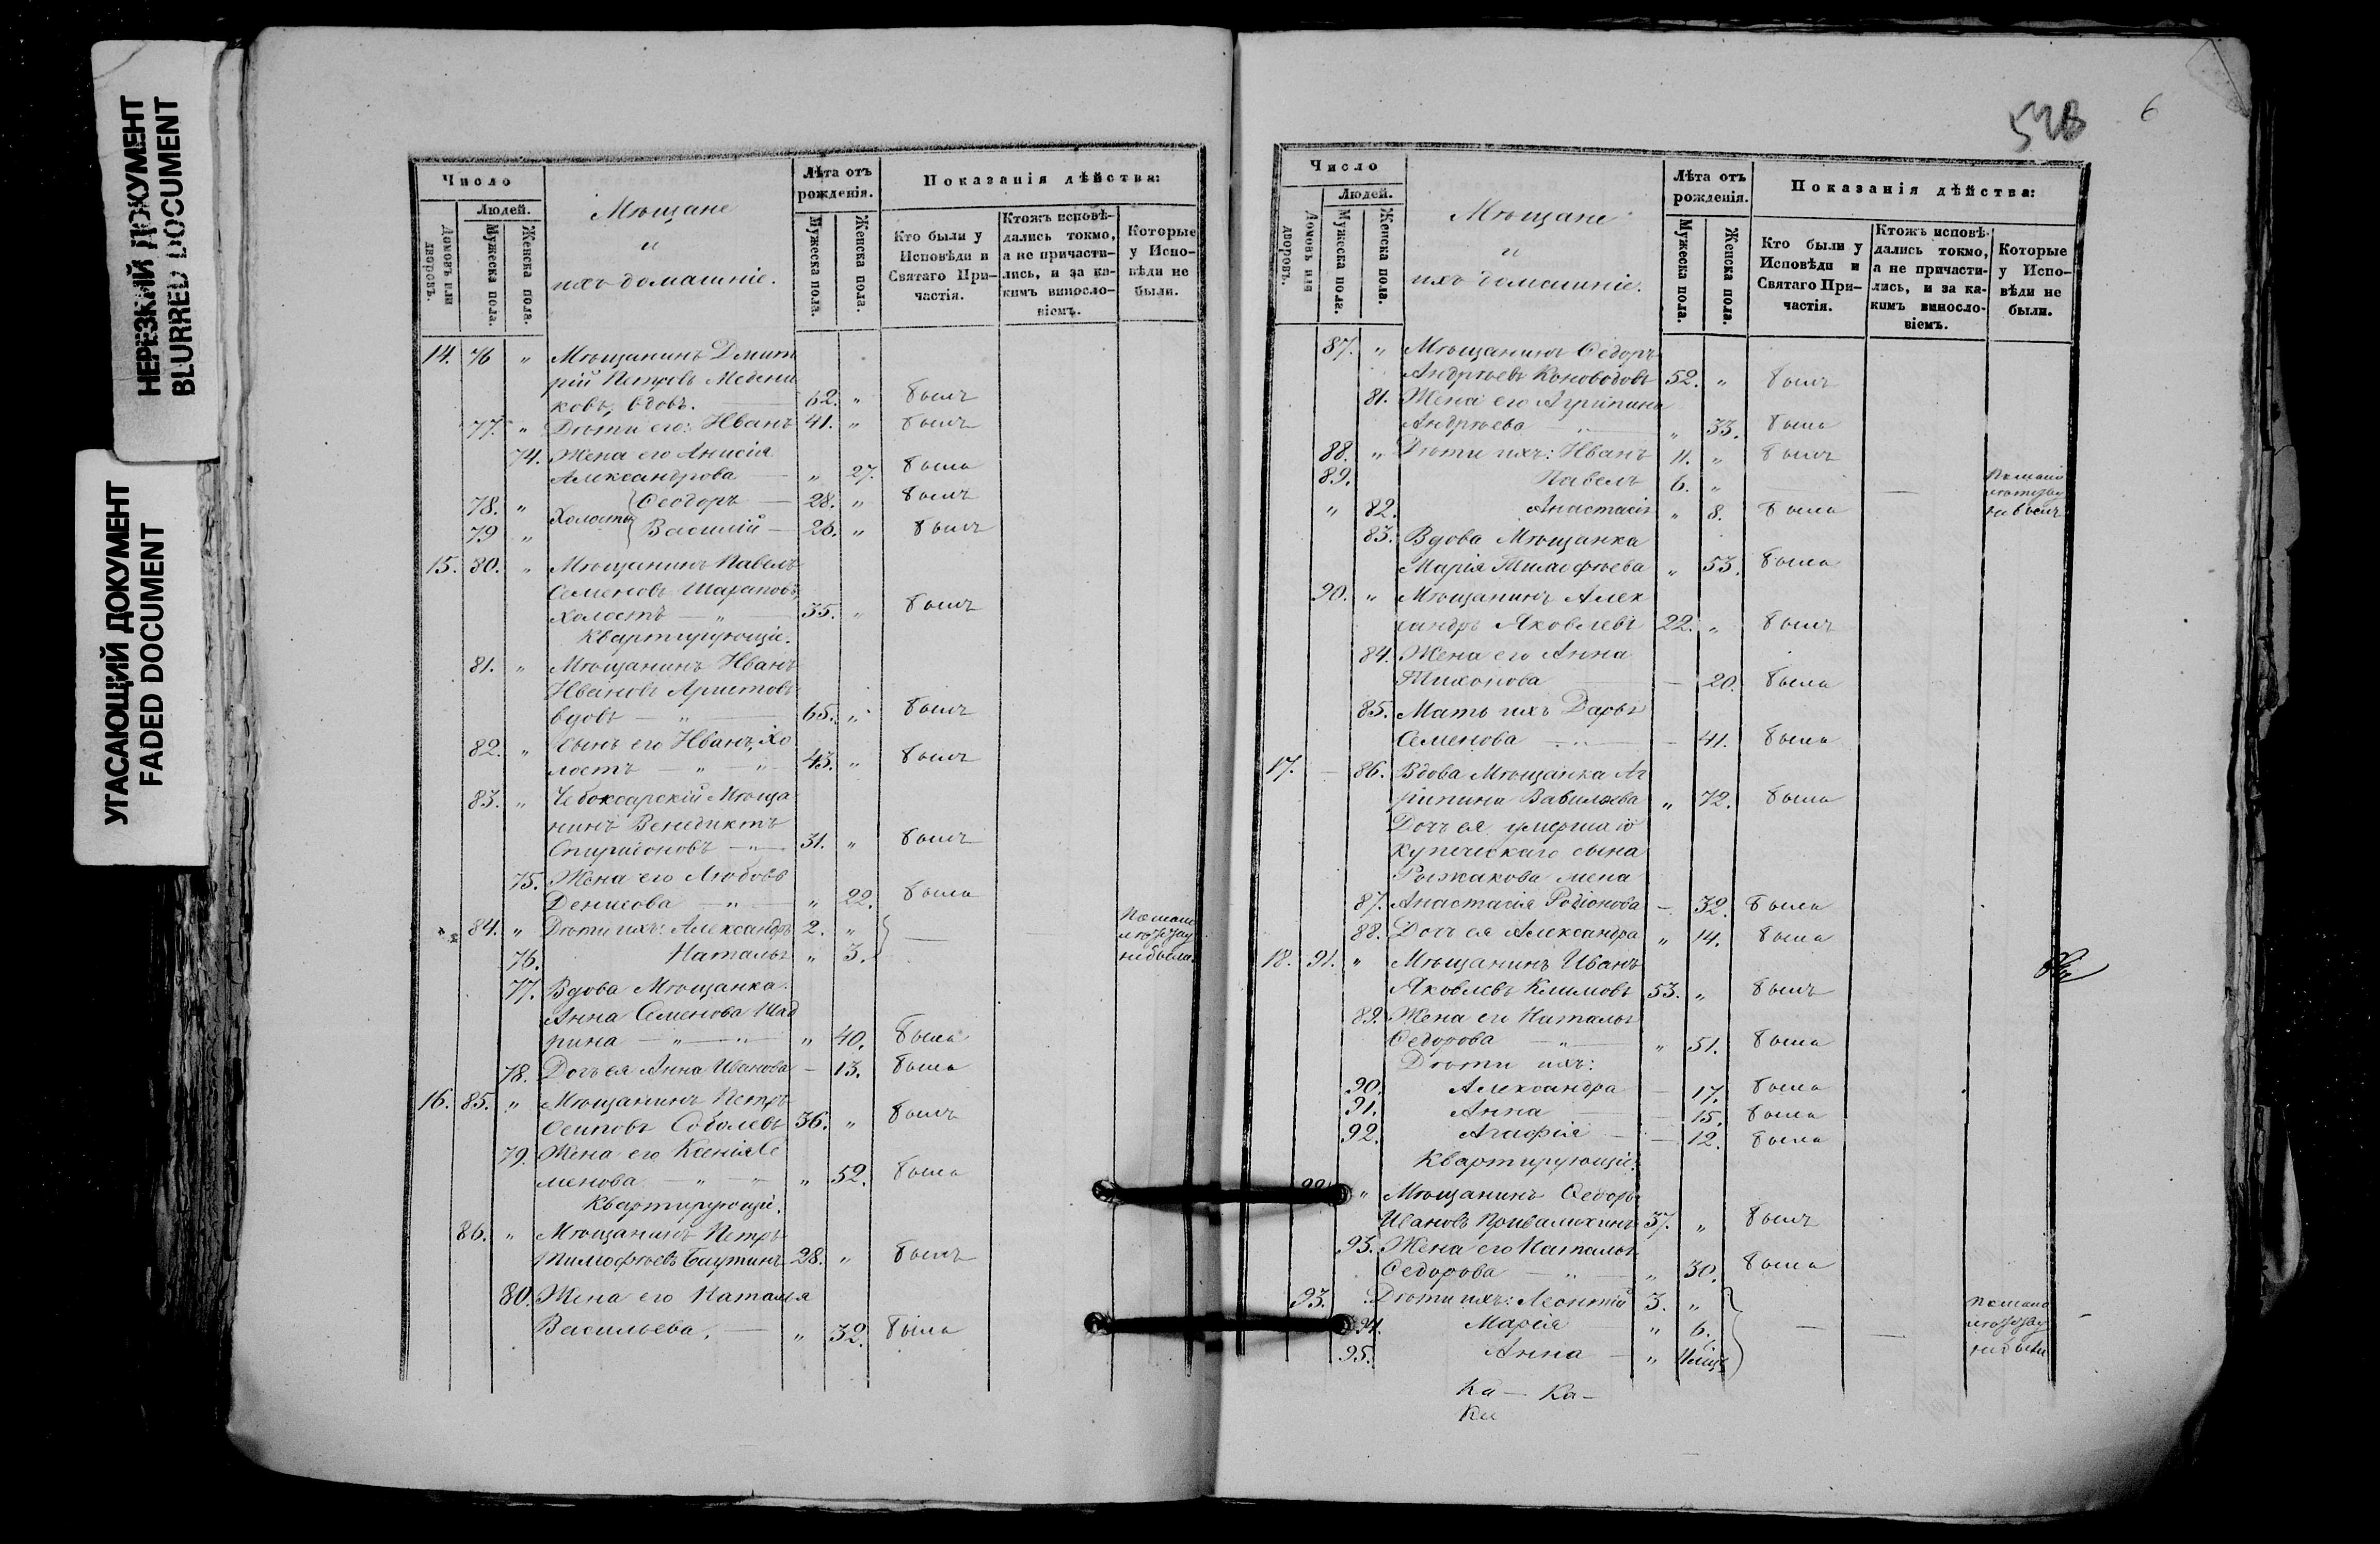 НЕРЕЗКИЙ ДОКУМЕНТ
BLURRED DOCUMENT
УГАСАЮЩИЙ ДОКУМЕНТ
FADED DOCUMENT
Число
Людей.
Домовъ или дворовъ.
Мужеска пола.
Женска пола.
Мѣщане
и
ихъ домашніе.
Лѣта отъ рожденія.
Мужеска пола.
Женска пола.
Показанія дѣйства:
Кто были у Исповѣди и Святаго При-частія.
Ктожъ исповѣ-дались токмо, а не причасти-лись, и за ка-кимъ винословіемъ.
Которые у Испо-вѣди не были.
14. 76 " Мѣщанинъ Дмит
рій Петровъ Медени
ковъ, вдовъ. — 62. " былъ
77. " Дѣти его: Иванъ 41. " былъ
74. Жена его Анисія
Александрова — " 27. была
78. " Холосты Ѳеодоръ — 28. " былъ
79 " Василій — 26. " былъ
15. 80. " Мѣщанинъ Павелъ
Семеновъ Шараповъ
холостъ — " — 35. " былъ
Квартирующіе.
81. " Мѣщанинъ Иванъ
Ивановъ Аристовъ
вдовъ — " — 65. " былъ
82. " Сынъ его Иванъ, хо
лостъ — " — " 43. " былъ
83. " Чебоксарскій Мѣща
нинъ Венедиктъ
Спиридоновъ — " — 31. " былъ
75. Жена его Любовь
Денисова — " — " 22. была
84. " Дѣти ихъ: Александръ 2. "
76. Наталья " 3. — По мало
лѣтству
не были.
77. Вдова Мѣщанка
Анна Семенова Шад
рина — " — " — " 40. была
78. Дочь ея Анна Иванова — 13. была
16. 85. " Мѣщанинъ Петръ
Осиповъ Соболевъ 36. " былъ
79. Жена его Ксенія Се
менова — " — " " 52. была
Квартирующіе.
86. " Мѣщанинъ Петръ
Тимофѣевъ 28. " былъ
80. Жена его Наталія
Васильева. — " 32. была
6
Число
Людей.
Домовъ или дворовъ.
Мужеска пола.
Женска пола.
Мѣщане
и
ихъ домашніе.
Лѣта отъ рожденія.
Мужеска пола.
Женска пола.
Показанія дѣйства:
Кто были у Исповѣди и Святаго При-частія.
Ктожъ исповѣ-дались токмо, а не причасти-лись, и за ка-кимъ винословіемъ.
Которые у Испо-вѣди не были.
87. " Мѣщанинъ Ѳедоръ
Андрѣевъ Коноводовъ 52. " былъ
81. Жена его Агрипина
Андрѣева — " — " 33. была
88. " Дѣти ихъ: Иванъ 11. " былъ
89. Павелъ 6. " — — По мало
лѣтству
не былъ
" 82. Анастасія " 8. была
83. Вдова Мѣщанка
Марія Тимофѣева " 53. была
90. " Мѣщанинъ Алек
сандръ Яковлевъ 22. " былъ
84. Жена его Анна
Тихонова — — 20. была
85. Мать ихъ Дарья
Семенова — " — — 41. была
17. — 86. Вдова Мѣщанка Аг
рипина Вавилова " 72. была
Дочь ея умершаго
купеческаго сына
Рыжакова жена
87. Анастасія Родіонова — 32. была
88. Дочь ея Александра " 14. была
18. 91. " Мѣщанинъ Иванъ
Яковлевъ Климовъ 53. " былъ
89. Жена его Наталья
Ѳедорова — " — " 51. была
Дѣти ихъ:
90. Александра — 17. была
91. Анна — — 15. была
92. Агафія — — 12. была
Квартирующіе:
" Мѣщанинъ Ѳедоръ
Ивановъ Привалихинъ 37. " былъ
93. Жена его Наталья
Ѳедорова — " — " 30. была
93. Дѣти ихъ: Леонтій 3. "
94. Марія " 6. — — По мало
лѣтству
не были
95. Анна — "